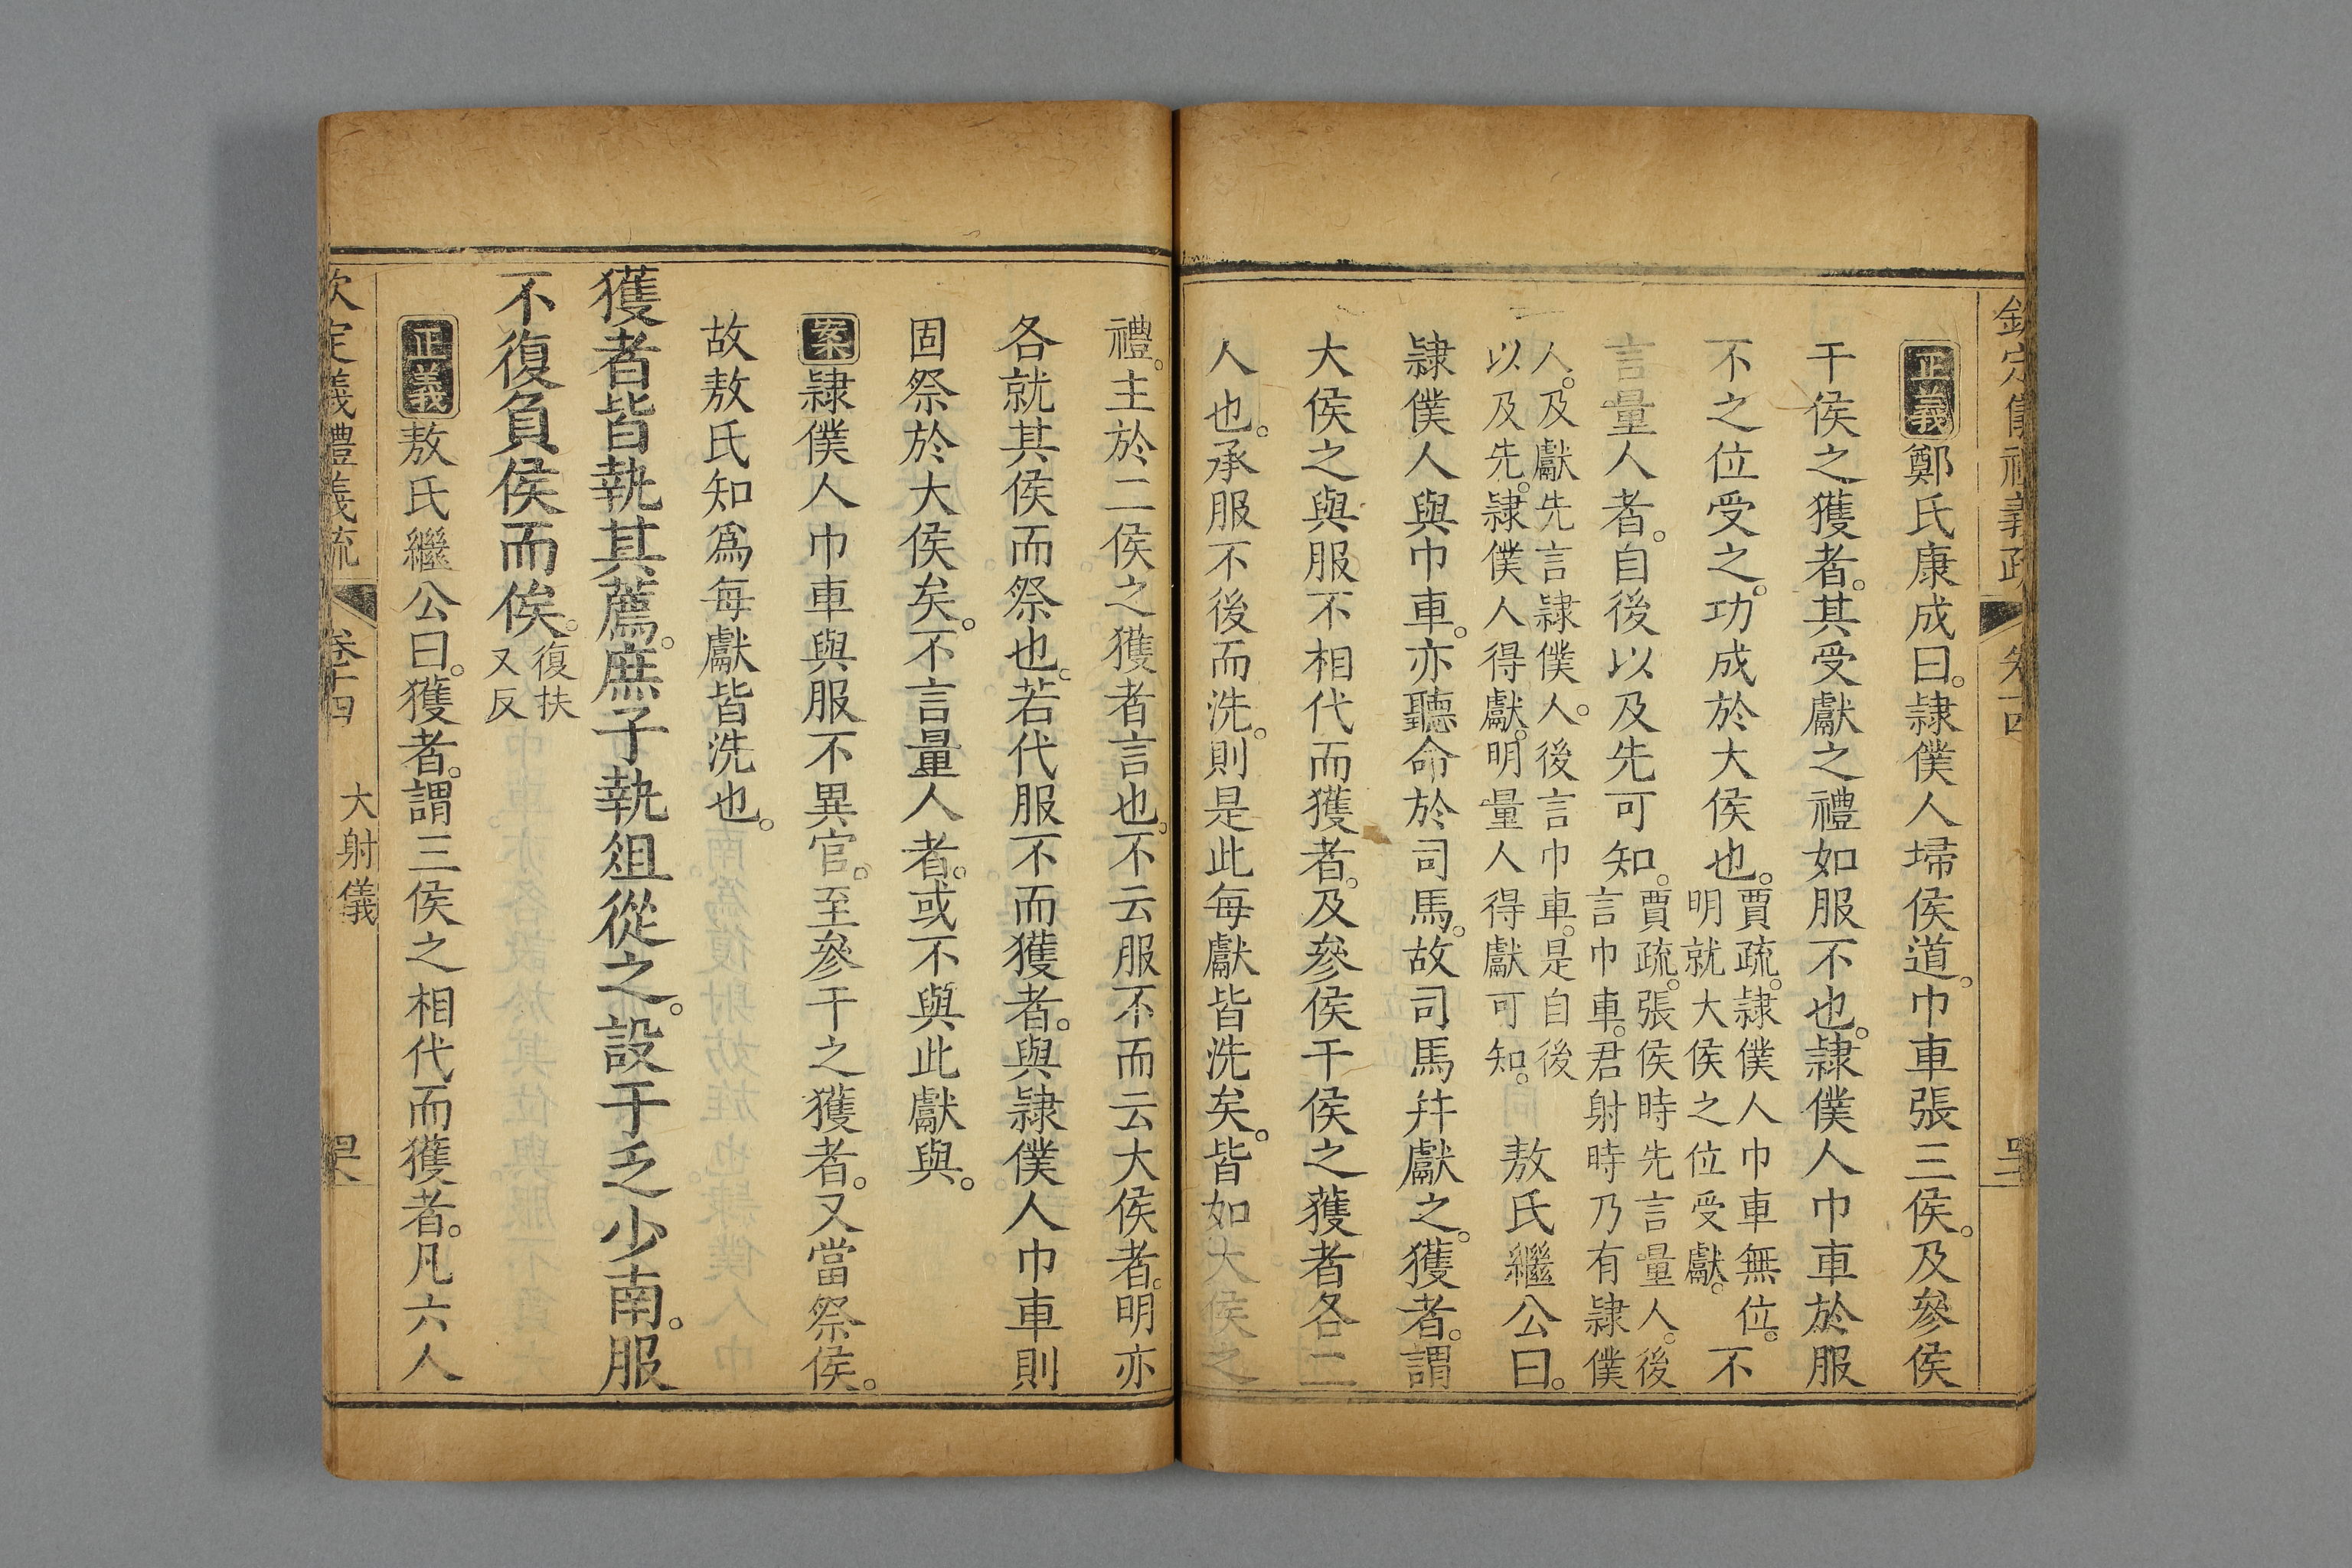 欽定儀禮義疏 卷十四
正義鄭氏康成曰。隷僕人埽侯道。巾車張三侯。及參侯
干侯之獲者。其受獻之禮如服不也。隷僕人巾車於服
不之位受之。功成於大侯也。賈疏。隷僕人巾車無位。明就大侯之位受獻。不
言量人者。自後以及先可知。賈疏。張侯時先言量人。後言巾車。君射時乃有隷僕
人。及獻先言隷僕人。後言巾車。是自後以及先。隷僕人得獻。明量人得獻可知。敖氏繼公曰。
隷僕人與巾車。亦聽命於司馬。故司馬幷獻之。獲者。謂
大侯之與服不相代而獲者。及參侯干侯之獲者各二
人也。承服不後而洗。則是此每獻皆洗矣。皆如大侯之
禮。主於二侯之獲者言也。不云服不而云大侯者。明亦
各就其侯而祭也。若代服不而獲者。與隷僕人巾車則
固祭於大侯矣。不言量人者。或不與此獻與。
案隷僕人巾車與服不異官。至參干之獲者。又當祭侯。
故敖氏知爲每獻皆洗也。
獲者皆執其薦。庶子執俎從之。設于乏少南。服
不復負侯而俟。復扶又反
正義敖氏繼公曰。獲者。謂三侯之相代而獲者。凡六人
欽定儀禮義疏 卷十四 大射儀